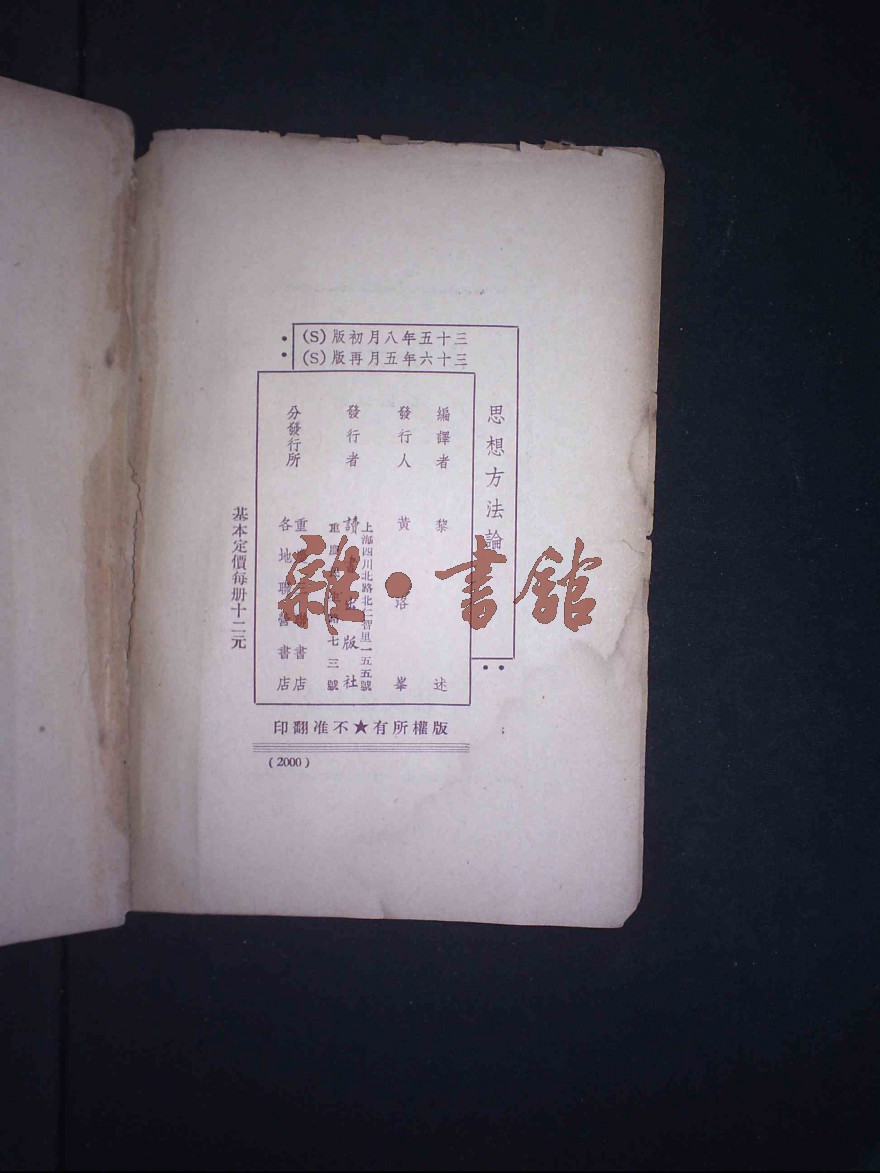 三十五年八月初版(S)
三十六年五月再版(S)
思想方法論
編譯者 黎 述
發行人 黃洛峯
發行者 讀書出版社
上海四川北路北仁智里一五五號
重慶民生路七三號
分發行所
重慶三聯書店
各地聯營書店
基本定價每册十二元
版權所有★不准翻印
(2000)
雜·書館